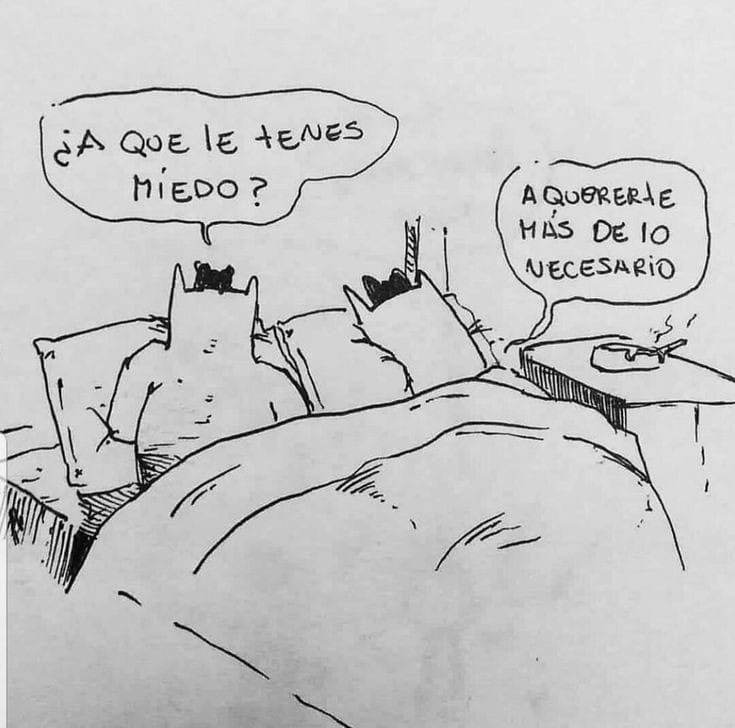 ¿A QUE lE tENES
MíEDO?
A QUERERtE
MÁS DE lO
NECESARiO